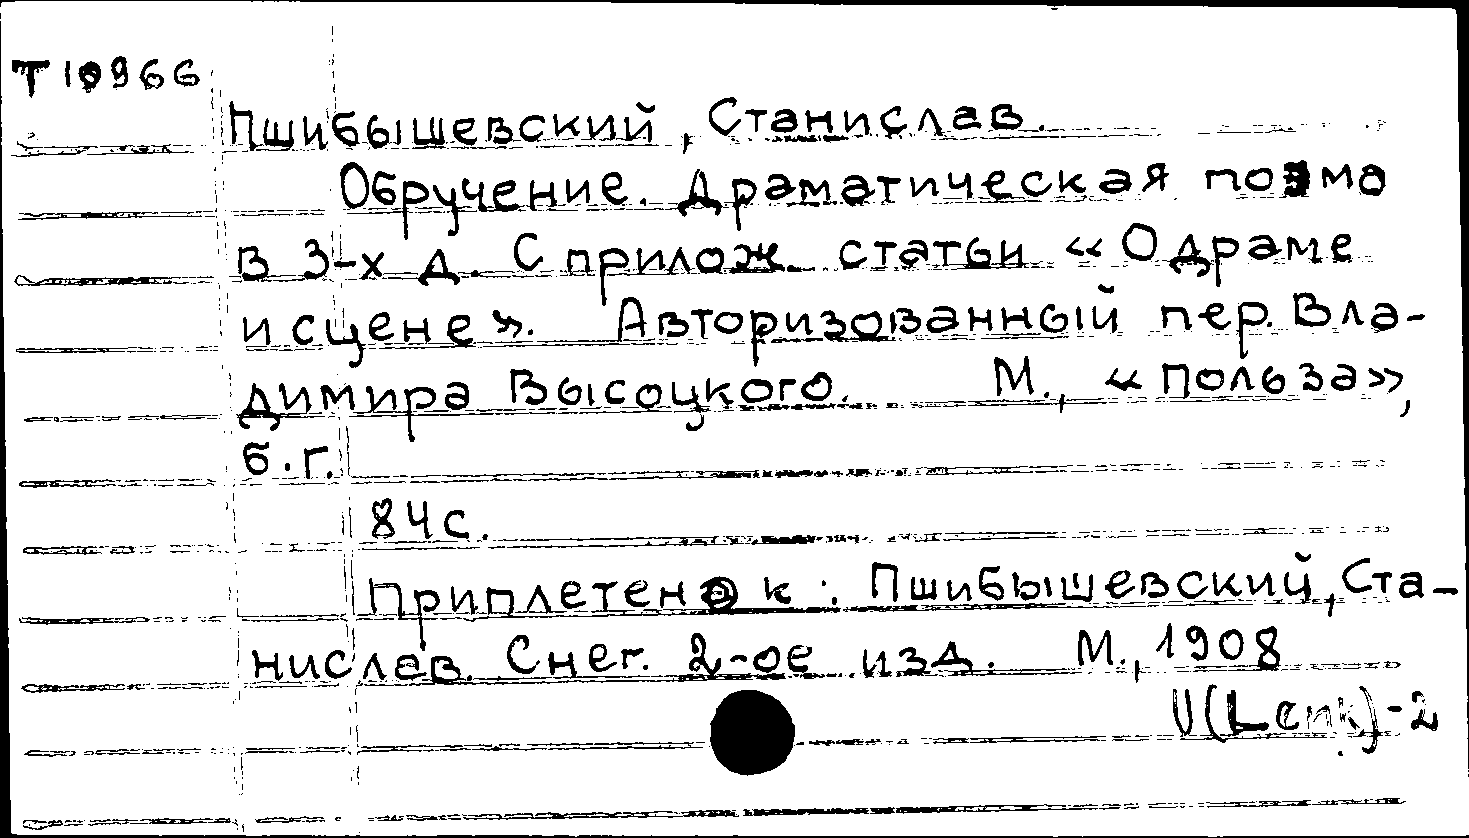 Т 10966
Пшибышевский, Станислав.
Обручение. Драматическая поэма
в 3-х д. С прилож. статьи «О драме
и сцене». Авторизованный пер. Вла-
димира Высоцкого. М., «Польза»,
б.г.
84 с.
Приплетено к: Пшибышевский, Ста-
нислав. Снег. 2-ое изд. М., 1908
U(Lenk)-2